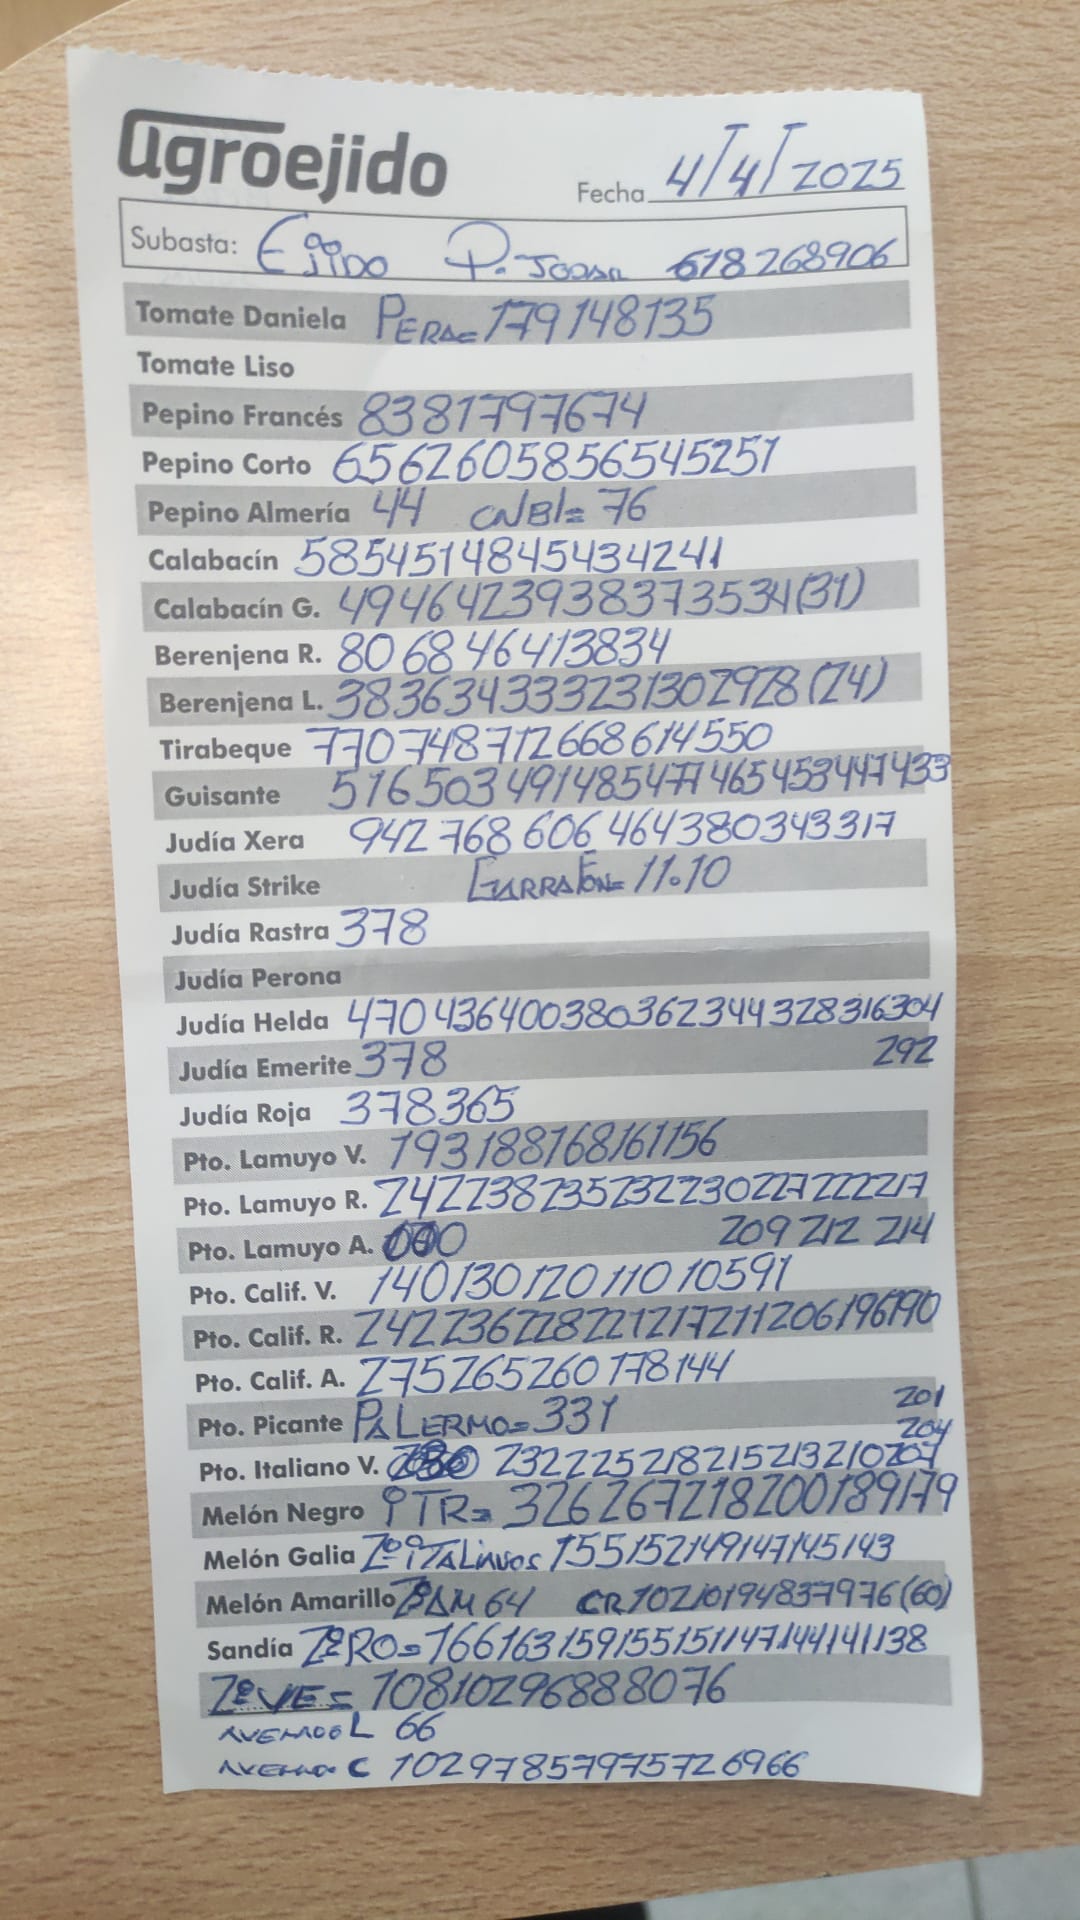 agroejido
Fecha 4/4/2025
Subasta: Ejido P. Jodar 618268906
Tomate Daniela PERA= 179148135
Tomate Liso
Pepino Francés 8381797674
Pepino Corto 6562605856545251
Pepino Almería 44 76
Calabacín 5854514845434241
Calabacín G. 4946423938373534(31)
Berenjena R. 806846413834
Berenjena L. 383634333231302928(24)
Tirabeque 770748712668614550
Guisante 516503491485477465453447433
Judía Xera 942768606464380343317
Judía Strike GARRAFÓN= 11.10
Judía Rastra 378
Judía Perona
Judía Helda 470436400380362344328316304
Judía Emerite 378 292
Judía Roja 378365
Pto. Lamuyo V. 193188168161156
Pto. Lamuyo R. 242238235232230227222217
Pto. Lamuyo A. 209 212 214
Pto. Calif. V. 14013012011010591
Pto. Calif. R. 242236228221217211206196190
Pto. Calif. A. 275265260178144
Pto. Picante PALERMO= 331 201
204
Pto. Italiano V. 232225218215213210207
Melón Negro iTR= 326267218200189179
Melón Galia 2º iTALiANOS 155152149147145143
Melón Amarillo 2º AM 64 CR 10210194837976(60)
Sandía 2º RO= 166163159155151147144141138
2º VE= 10810296888076
AVENADO L 66
AVENADO C 10297857975726966